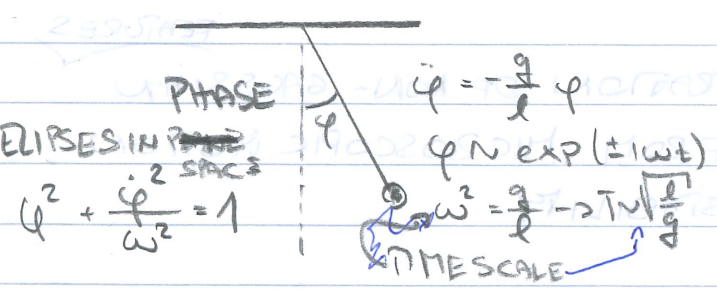 PHASE
ELIPSES IN SPACE
φ² + φ̇²/ω² = 1
φ
φ̈ = -g/l φ
φ ~ exp(±iωt)
ω² = g/l -> T~√(l/g)
TIMESCALE